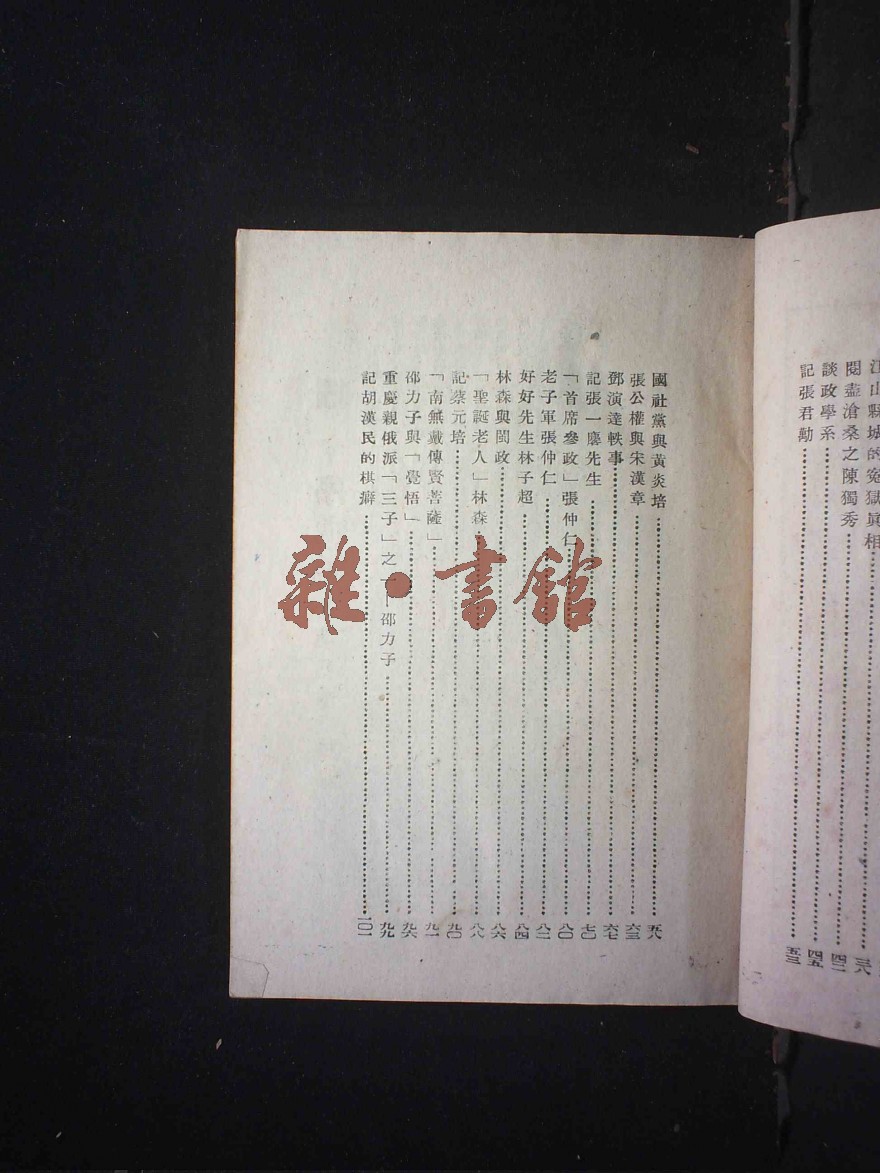 江山縣城的冤獄眞相……三八
閱盡滄桑之陳獨秀……四二
談政學系……四五
記張君勱……五三
國社黨與黃炎培……五八
張公權與宋漢章……六三
鄧演達軼事……六七
記張一麐先生……七〇
「首席參政」張仲仁……八〇
老子軍張仲仁……八二
好好先生林子超……八四
林森與閩政……八六
「聖誕老人」林森……八八
記蔡元培……九〇
「南無戴傳賢菩薩」……九一
邵力子與「覺悟」……九六
重慶親俄派「三子」之一——邵力子……九九
記胡漢民的棋癖……一〇一
雜·書館